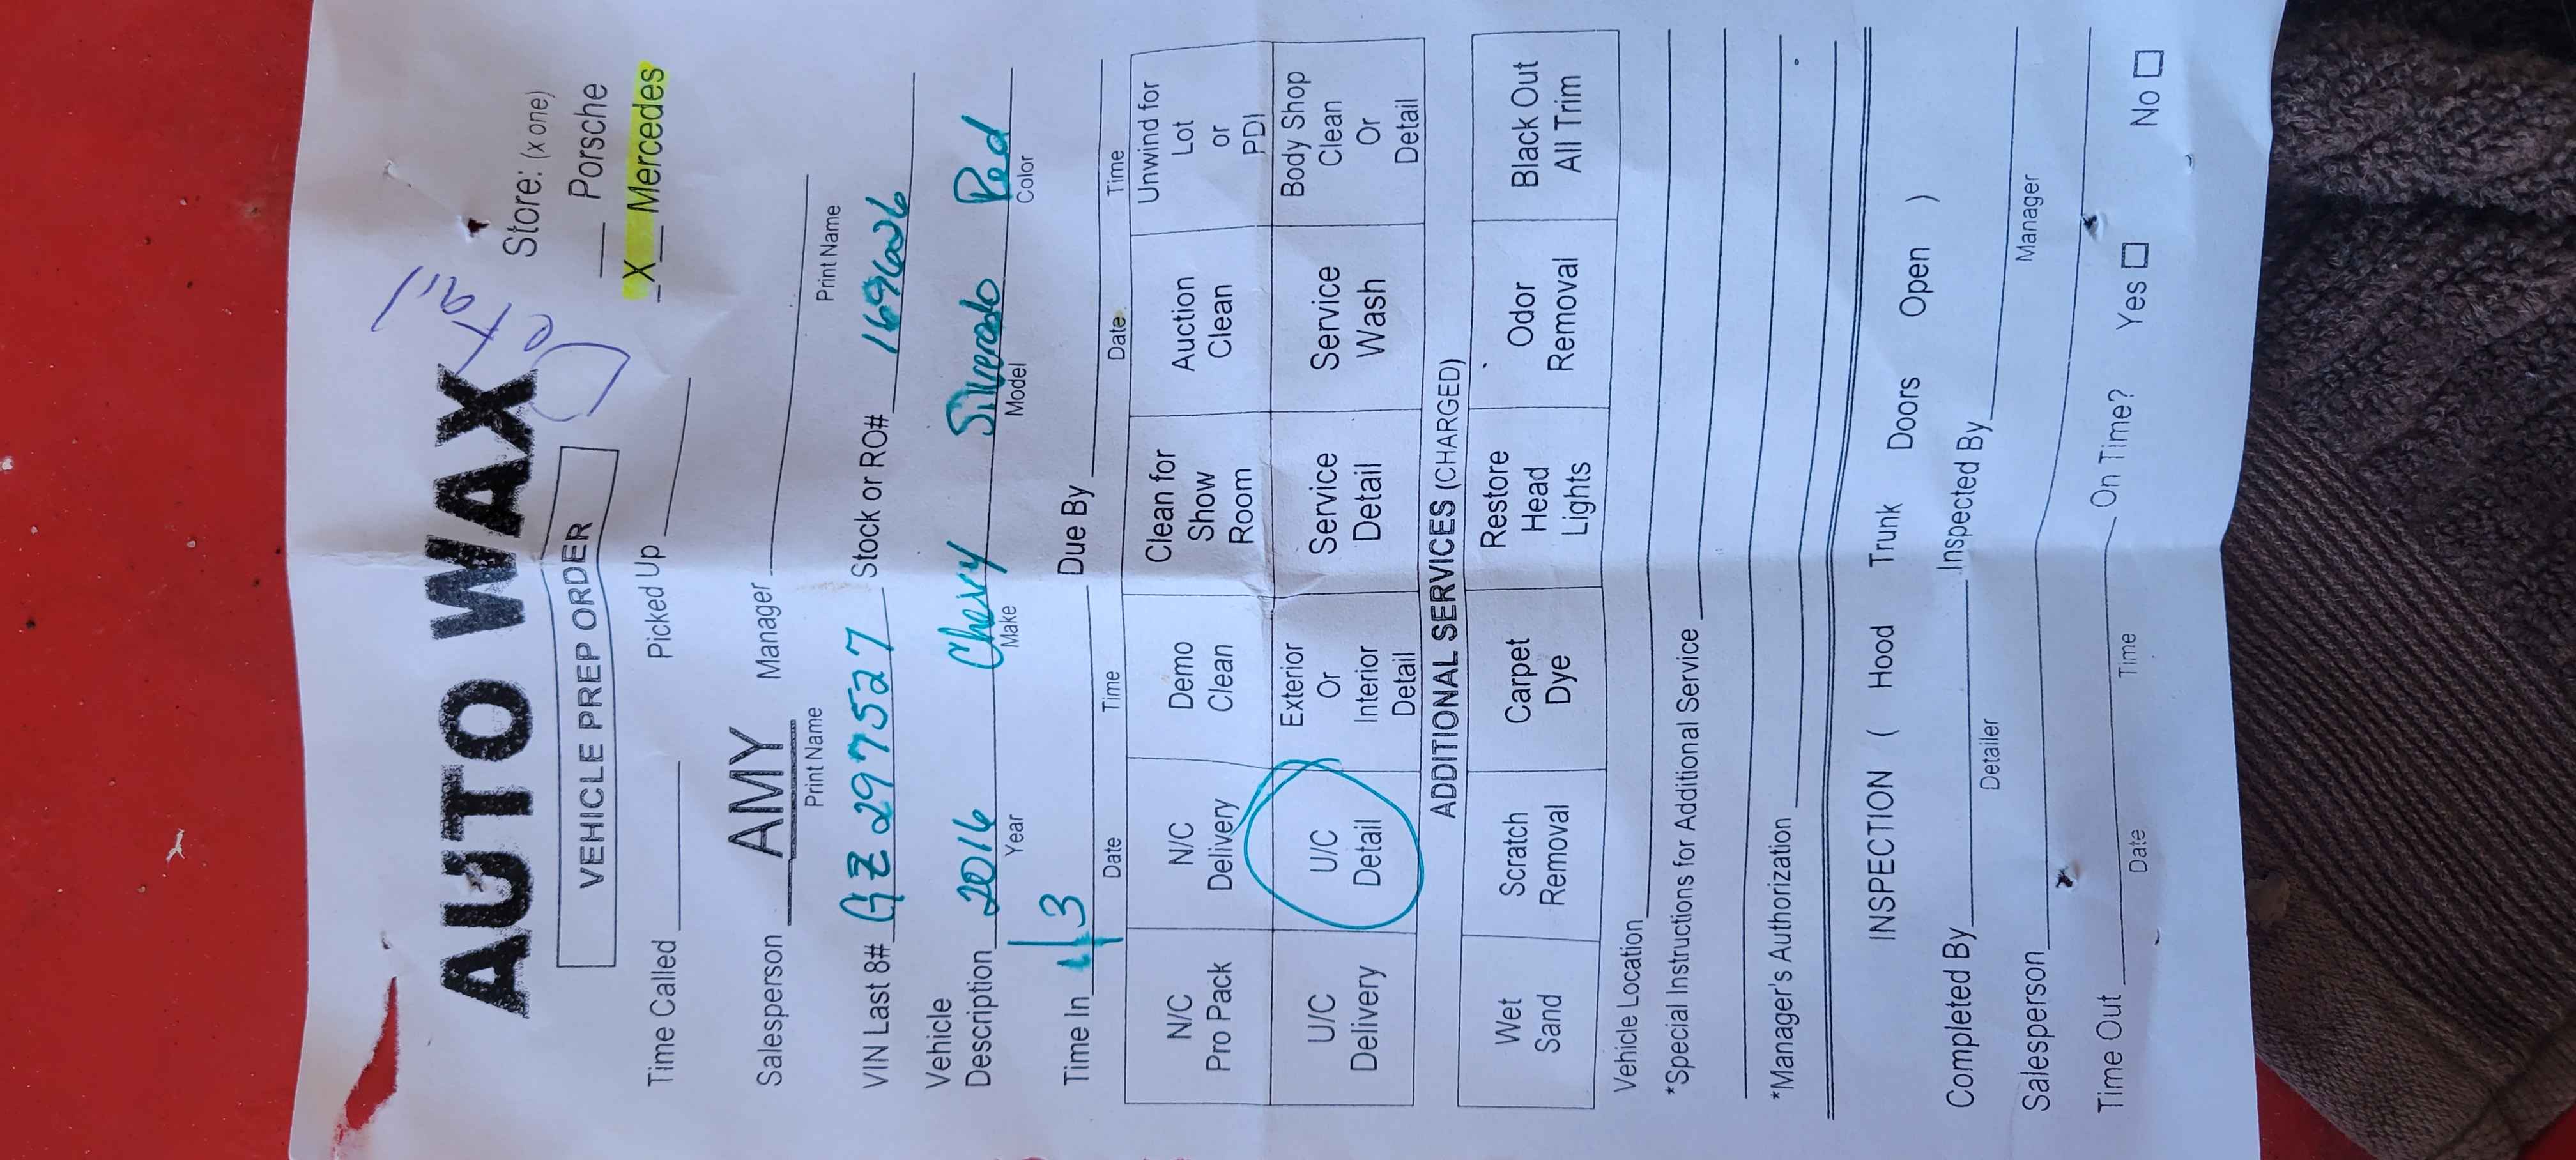 AUTO WAX
Detail
VEHICLE PREP ORDER
Store: (x one)
Porsche
X Mercedes
Time Called Picked Up
Salesperson AMY Manager
Print Name Print Name
VIN Last 8# GZ297527 Stock or RO#
Vehicle
Description 2016 Chevy Silverado Red
Year Make Model Color
Time In Due By
Date Time Date Time
N/C Pro Pack N/C Delivery Demo Clean Clean for Show Room Auction Clean Unwind for Lot or PDI
U/C Delivery U/C Detail Exterior Or Interior Detail Service Detail Service Wash Body Shop Clean Or Detail
ADDITIONAL SERVICES (CHARGED)
Wet Sand Scratch Removal Carpet Dye Restore Head Lights Odor Removal Black Out All Trim
Vehicle Location
*Special Instructions for Additional Service
*Manager's Authorization
INSPECTION ( Hood Trunk Doors Open )
Completed By Inspected By
Detailer Manager
Salesperson
Time Out On Time? Yes □ No □
Date Time